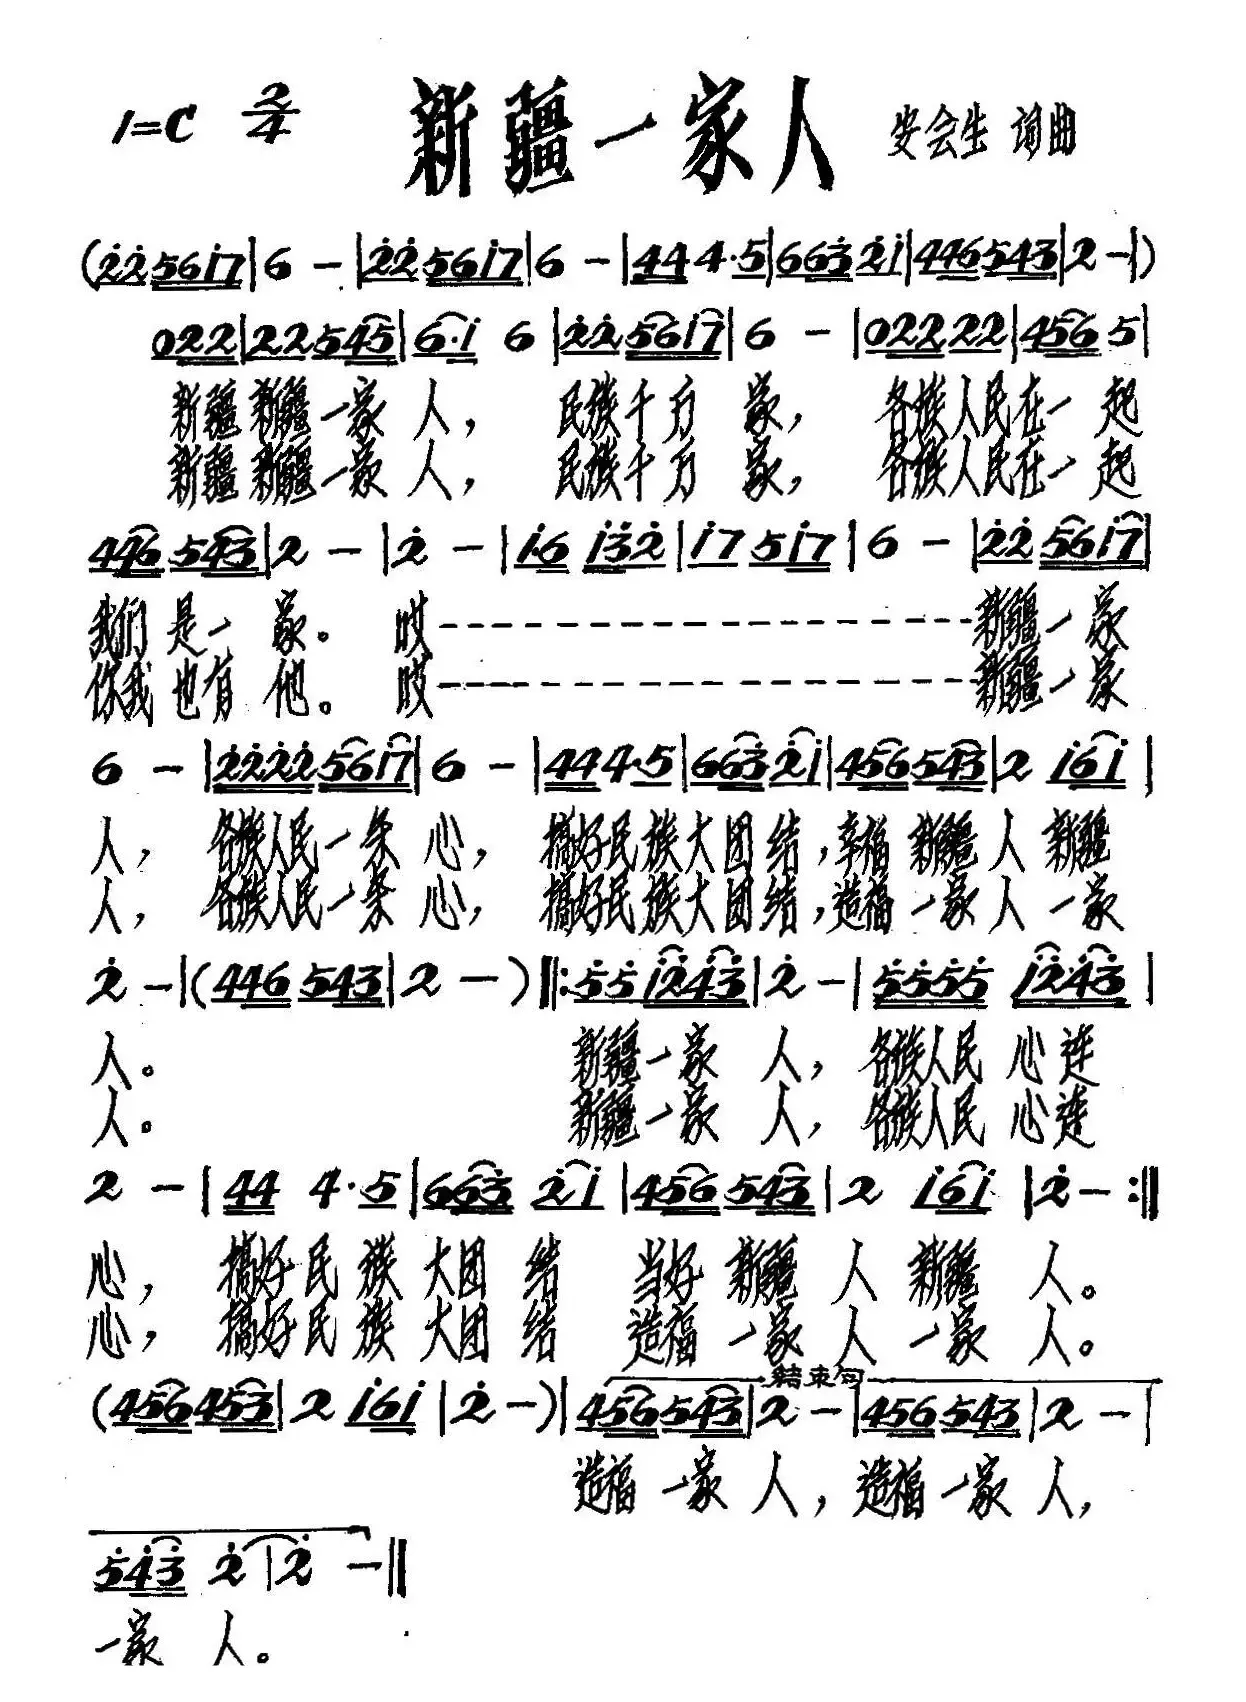 1=C 2/4 新疆一家人 安会生 词曲
(2̇2̇561̇7|6 -|2̇2̇561̇7|6 -|444·5|663̇2̇1̇|446543|2 -|)
022|22545|6·1̇ 6|2̇2̇561̇7|6 -|02222|456 5|
新疆 新疆一家 人， 民族千万 家， 各族人民在一 起
新疆 新疆一家 人， 民族千万 家， 各族人民在一 起
446 543|2 -|2̇ -|1̇·6 1̇3̇2̇|1̇7 51̇7|6 -|2̇2̇561̇7|
我们 是一 家。 哎----------------新疆一家
你我 也有 他。 哎----------------新疆一家
6 -|2̇2̇2̇2̇561̇7|6 -|444·5|663̇2̇1̇|456543|2 1̇61̇|
人， 各族人民一条 心， 搞好民族大团结，幸福 新疆 人 新疆
人， 各族人民一条 心， 搞好民族大团结，造福 一家 人 一家
2̇ -|(446 543|2 -)‖:5̇5̇1̇2̇4̇3̇|2̇ -|5̇5̇5̇5̇ 1̇2̇4̇3̇|
人。 新疆一家 人，各族人民 心连
人。 新疆一家 人，各族人民 心连
2 -|44 4·5|663̇ 2̇1̇|456543|2 1̇61̇|2̇ -:‖
心， 搞好民族 大团 结 当好 新疆 人 新疆 人。
心， 搞好民族 大团 结 造福 一家 人 一家 人。
结束句
(456453|2 1̇61̇|2̇ -)|456543|2 -|456543|2 -|
造福 一家 人，造福 一家 人，
5̇4̇3̇ 2̇|2̇ -‖
一家 人。